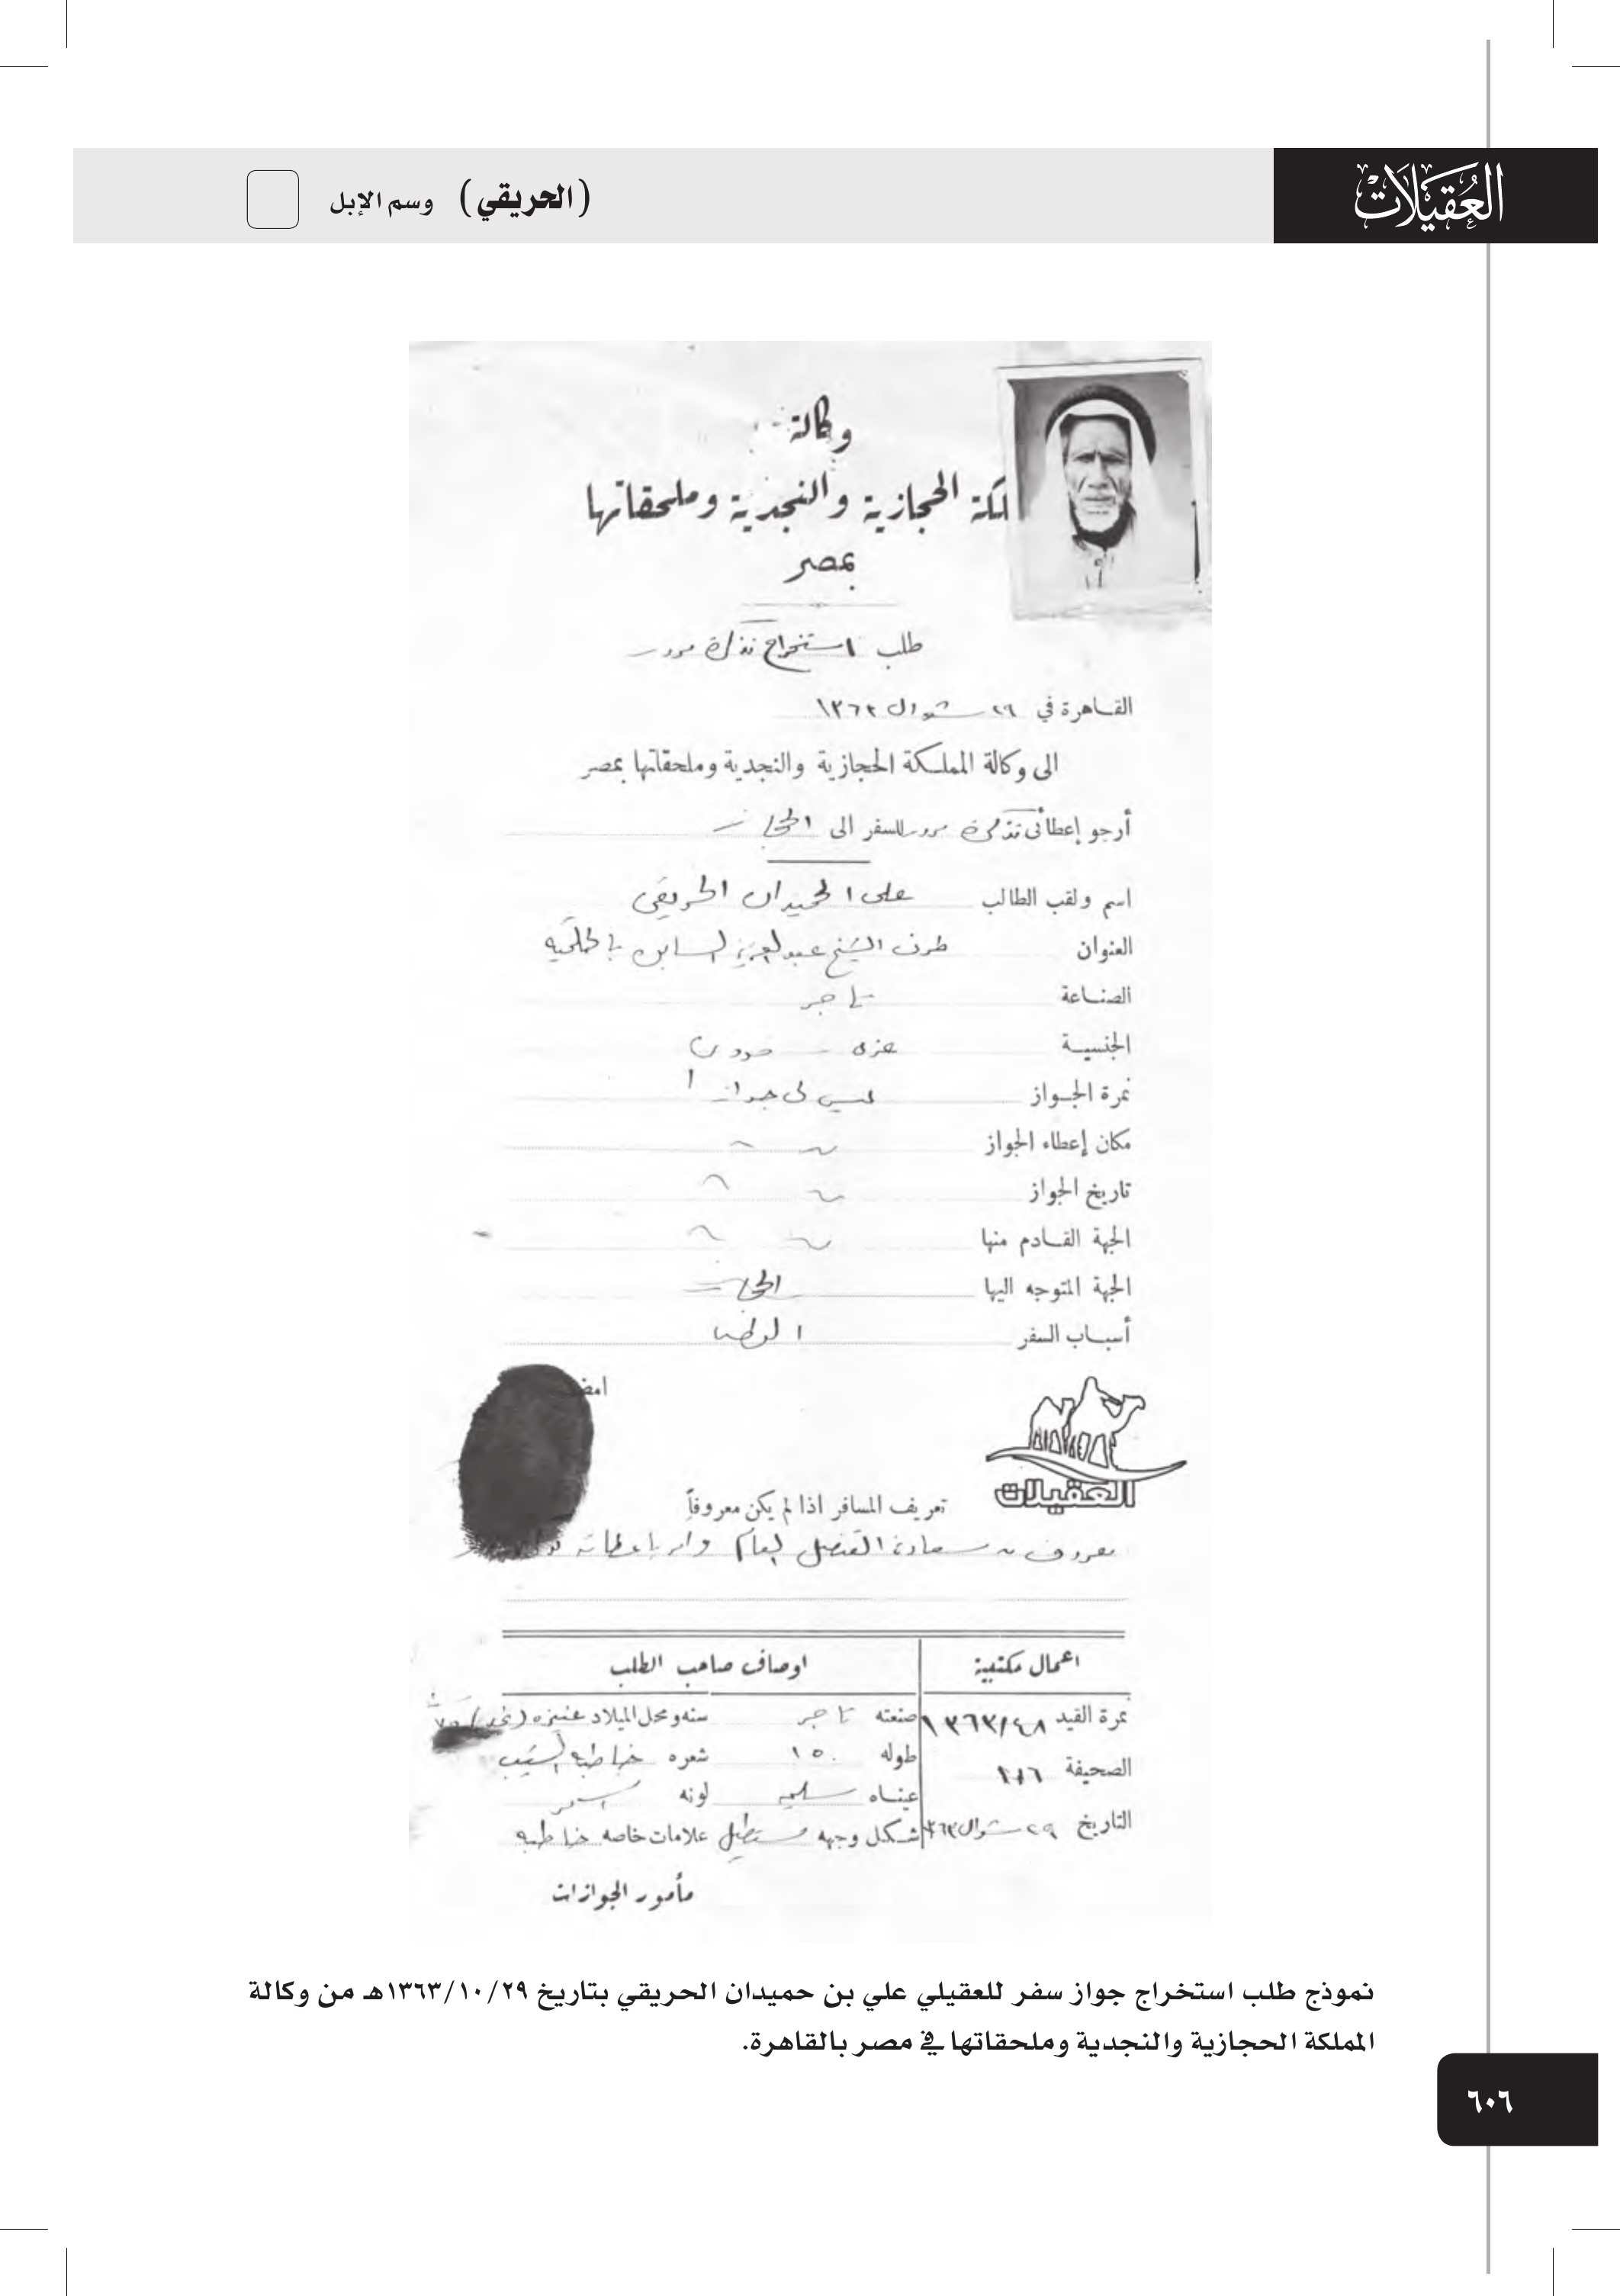 العُقَيلات
(الحريقي) وسم الإبل
وكالة
لكة الحجازية والنجدية وملحقاتها
بمصر
طلب استخراج تذكرة مرور
القاهرة في ٢٦ شوال ١٣٦٣
الى وكالة المملكة الحجازية والنجدية وملحقاتها بمصر
أرجو إعطائى تذكرة مرور للسفر الى الحجاز
اسم ولقب الطالب على الحميدان الحريقى
العنوان طرف الشيخ عبدالعزيز بالحلميه
الصناعة تاجر
الجنسية
نمرة الجواز ليس لى جواز
مكان إعطاء الجواز
تاريخ الجواز
الجهة القادم منها
الجهة المتوجه اليها الحجاز
أسباب السفر
امض
العقيلات
تعريف المسافر اذا لم يكن معروفاً
معروف سعادة القنصل العام وامر باعطائه
اعمال مكتبية اوصاف صاحب الطلب
نمرة القيد ١٣٦٣/٤٨ صنعته تاجر سنه ومحل الميلاد عنيزه (نجد) ٧٥
الصحيفة طوله ١٥٠ شعره خباطه الشيب
عيناه سليمه لونه اسمر
التاريخ ٢٩ شوال ٣٦٣ شكل وجهه مستطيل علامات خاصه
مأمور الجوازات
نموذج طلب استخراج جواز سفر للعقيلي علي بن حميدان الحريقي بتاريخ ١٣٦٣/١٠/٢٩هـ من وكالة
المملكة الحجازية والنجدية وملحقاتها في مصر بالقاهرة.
٦٠٦